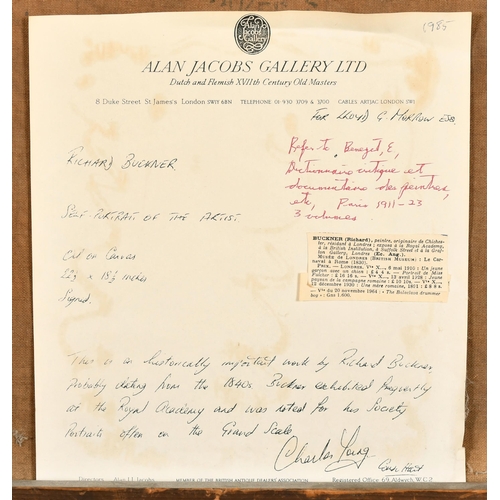 1985
Alan Jacobs Gallery
ALAN JACOBS GALLERY LTD
Dutch and Flemish XVIIth Century Old Masters
8 Duke Street St James's London SW1Y 6BN TELEPHONE 01-930 3709 & 3700 CABLES ARTJAC LONDON SW1
FOR LLOYD G MORROW ESQ.
RICHARD BUCKNER
SELF-PORTRAIT OF THE ARTIST
Oil on Canvas
x inches
Signed
Refer to Benezet, E,
Dictionnaire critique et
documentaire des peintres,
etc, Paris 1911-23
3 volumes
BUCKNER (Richard), peintre, originaire de Chiches-
ter, résidant à Londres; exposa à la Royal Academy,
à la British Institution, à Suffolk Street et à la Graf-
ton Gallery, Londres (Ec. Ang.).
MUSÉE DE LONDRES (BRITISH MUSEUM): Le Car-
naval à Rome (1820).
PRIX. — LONDRES. Vte X..., 6 mai 1910: Un jeune
garçon avec un chien: £ 4 4 s. — Portrait de Miss
Fulcher: £ 16 s. — Vte X..., 13 avril 1928: Jeune
paysan de la campagne romaine: £ 10 10s. — Vte X...,
12 décembre 1930: Une mère romaine, 1871: £ 8 8 s.
— Vte du 20 novembre 1964: «The Bolacious drummer
boy»: Gns 1.600.
This is an historically important work by Richard Buckner
probably dating from the 1840s. Buckner exhibited frequently
at the Royal Academy and was noted for his Society
Portraits often on the Grand Scale.
Charles Young
Directors Alan J.L. Jacobs MEMBER OF THE BRITISH ANTIQUE DEALERS ASSOCIATION Registered Office 69, Aldwych, W.C.2